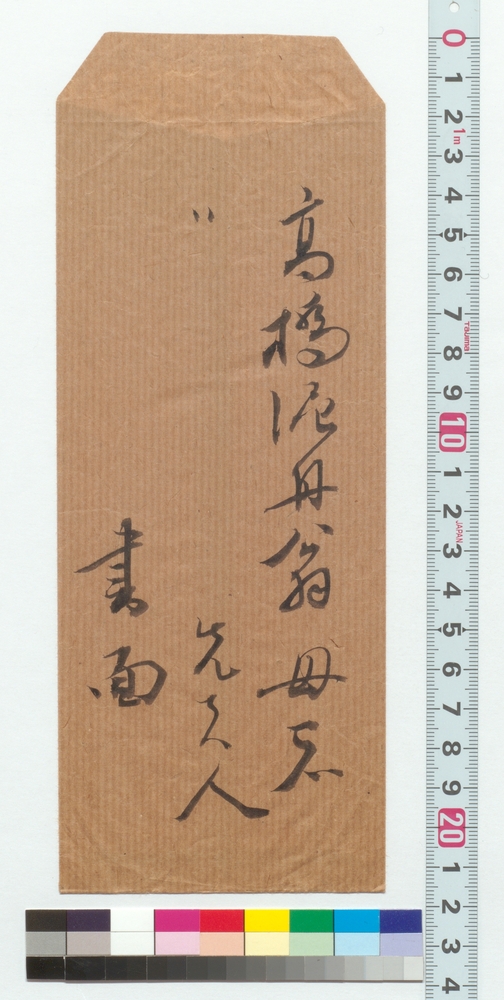 高橋泥舟翁母君
〃先夫人
書面
0 1 2 3 4 5 6 7 8 9 10 1 2 3 4 5 6 7 8 9 20 1 2 3 4
1m
Tajima
JAPAN